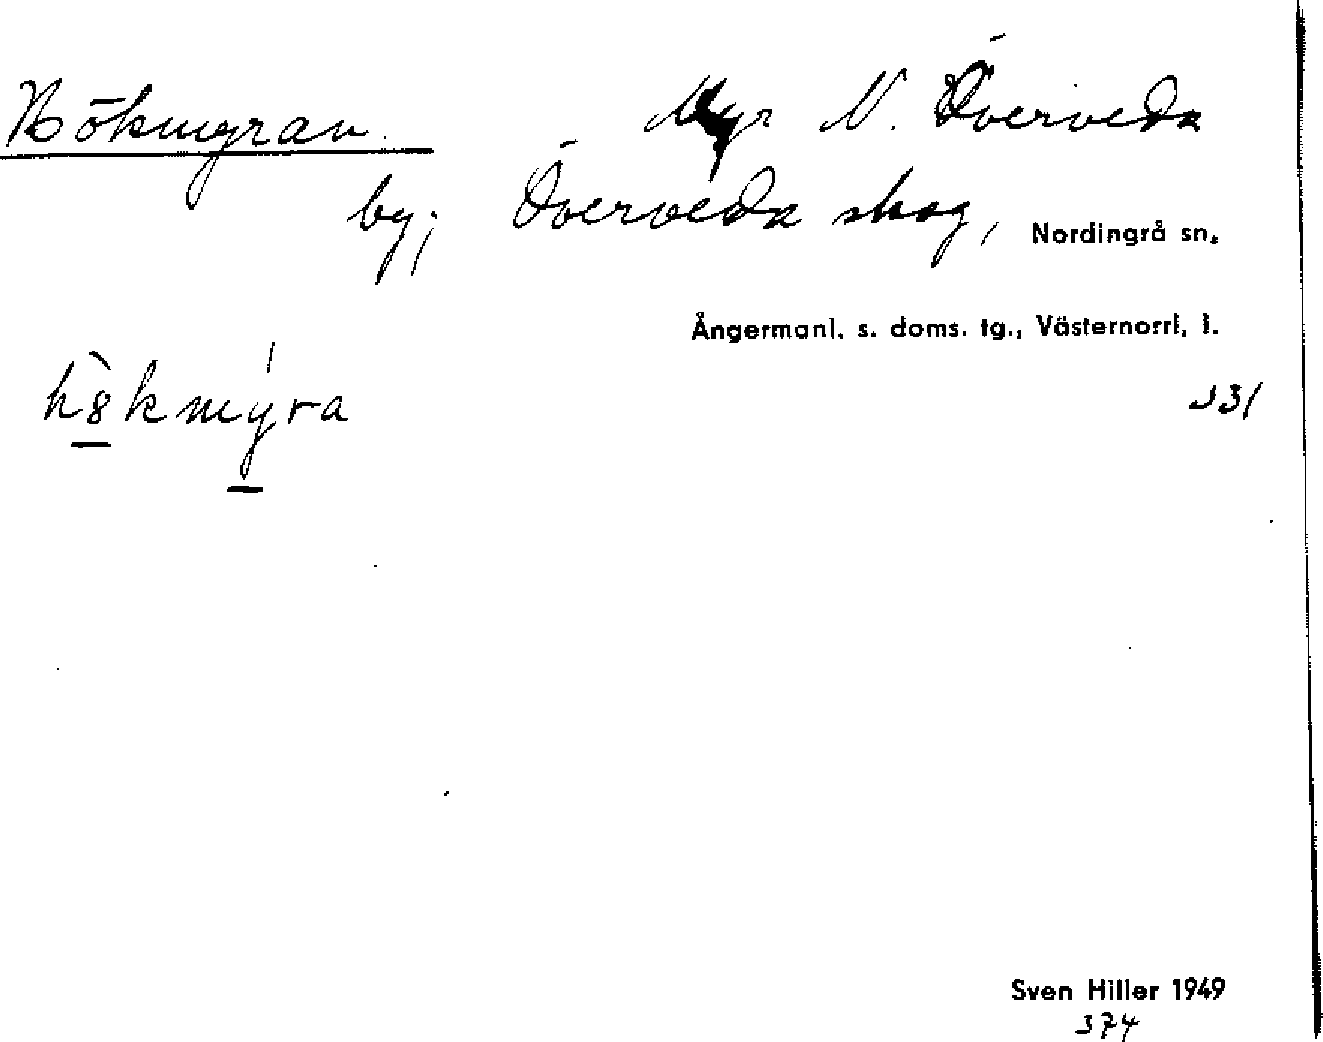 Hökmyran. Myr N. Överveda
by; Överveda skog, Nordingrå sn.
Ångermanl. s. doms. tg., Västernorrl. l.
h8̀kmýra
331
Sven Hiller 1949
374